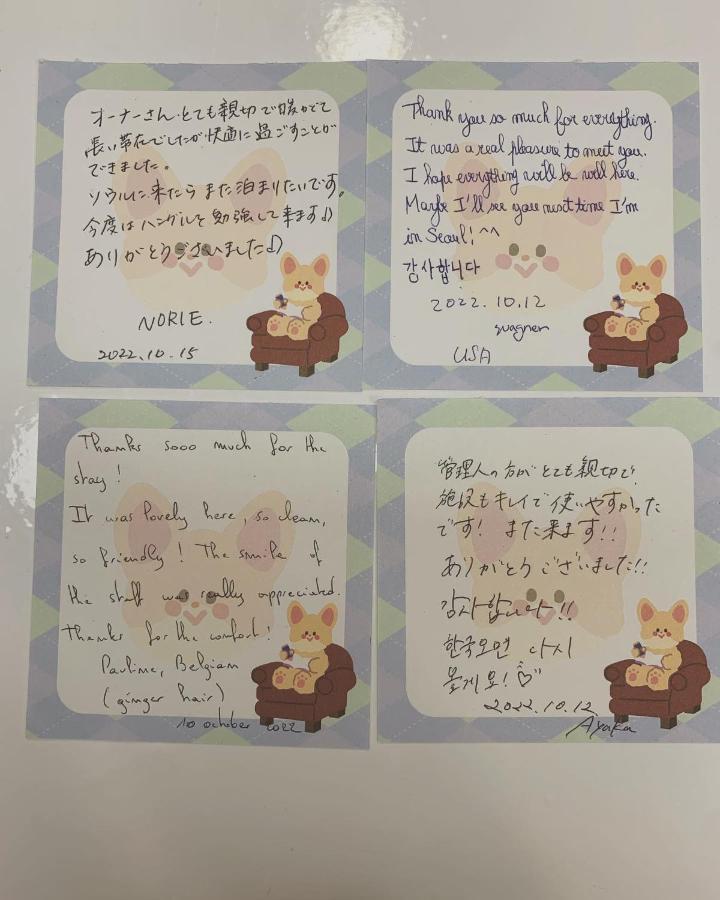 オーナーさん、とても親切で暖かくて
長い滞在でしたが快適に過ごすことが
できました。
ソウルに来たら また泊まりたいです。
今度はハングルを勉強して来ます♪
ありがとうございました♪
NORIE.
2022.10.15
Thank you so much for everything.
It was a real pleasure to meet you.
I hope everything will be well here.
Maybe I'll see you next time I'm
in Seoul! ^^
감사합니다
2022.10.12
wagner
USA
Thanks sooo much for the
stay!
It was lovely here, so clean,
so friendly! The smile of
the staff was really appreciated.
Thanks for the comfort!
Pauline, Belgian
(ginger hair)
10 october 2022
管理人の方がとても親切で、
施設もキレイで使いやすかった
です! また来ます!!
ありがとうございました!!
감사합니다!!
한국오면 다시
올게요! ♡
2022.10.12
Ayaka